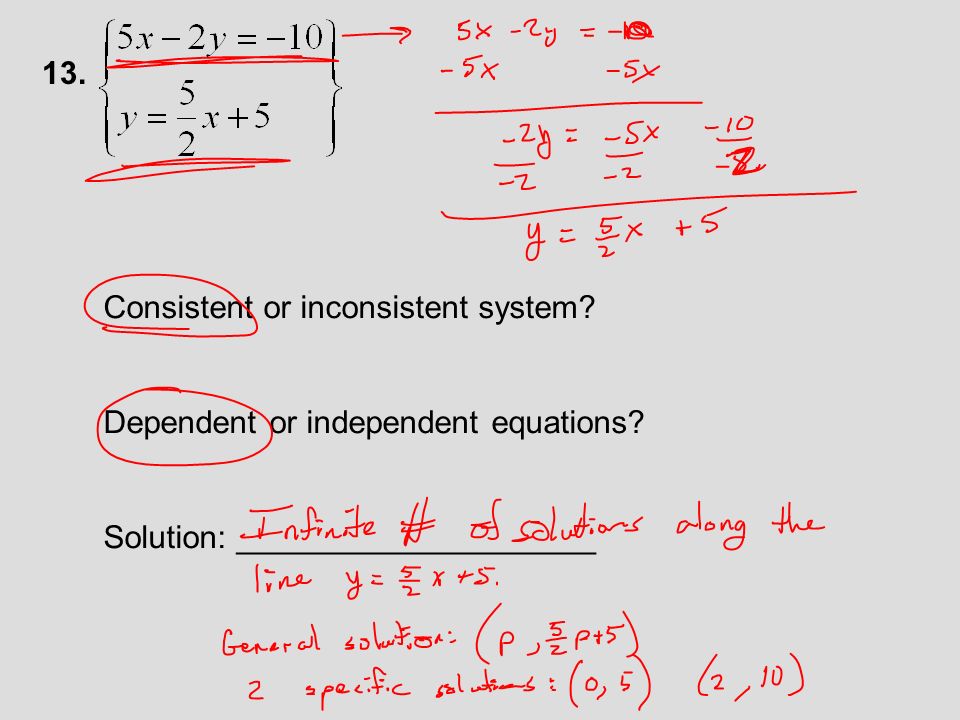 13.
5x − 2y = −10
y = 5/2 x + 5
5x - 2y = -10
- 5x - 5x
-2y = -5x -10
-2 -2 -2
y = 5/2 x + 5
Consistent or inconsistent system?
Dependent or independent equations?
Solution: Infinite # of solutions along the
line y = 5/2 x + 5.
General solution: (p, 5/2 p+5)
2 specific solutions: (0, 5) (2, 10)